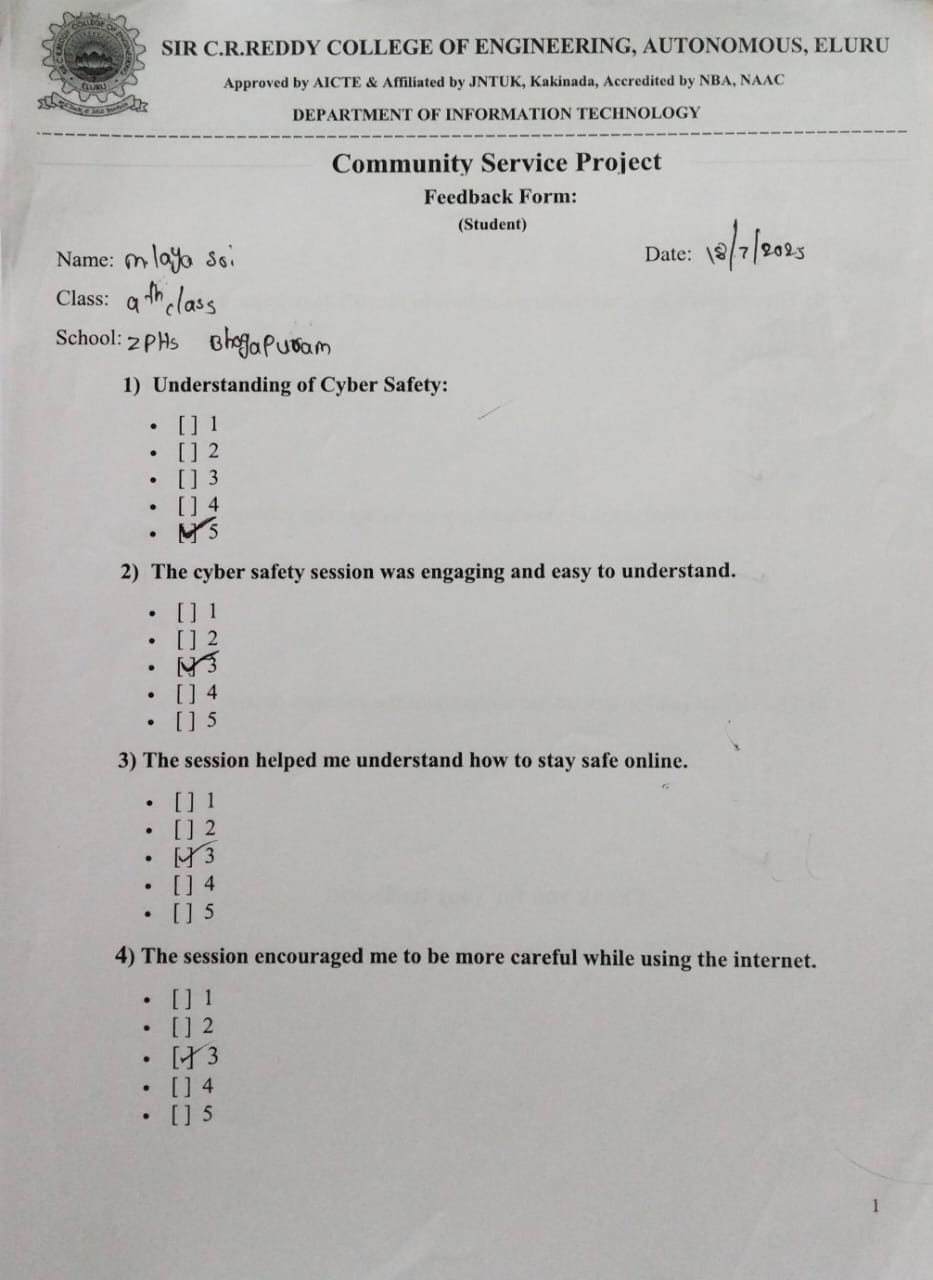 SIR C.R.REDDY COLLEGE OF ENGINEERING, AUTONOMOUS, ELURU
Approved by AICTE & Affiliated by JNTUK, Kakinada, Accredited by NBA, NAAC
DEPARTMENT OF INFORMATION TECHNOLOGY
Community Service Project
Feedback Form:
(Student)
Name: m laya Sai Date: 18/7/2025
Class: 9th class
School: ZPHs Bhogapuram
1) Understanding of Cyber Safety:
• [ ] 1
• [ ] 2
• [ ] 3
• [ ] 4
• [✓] 5
2) The cyber safety session was engaging and easy to understand.
• [ ] 1
• [ ] 2
• [✓] 3
• [ ] 4
• [ ] 5
3) The session helped me understand how to stay safe online.
• [ ] 1
• [ ] 2
• [✓] 3
• [ ] 4
• [ ] 5
4) The session encouraged me to be more careful while using the internet.
• [ ] 1
• [ ] 2
• [✓] 3
• [ ] 4
• [ ] 5
1